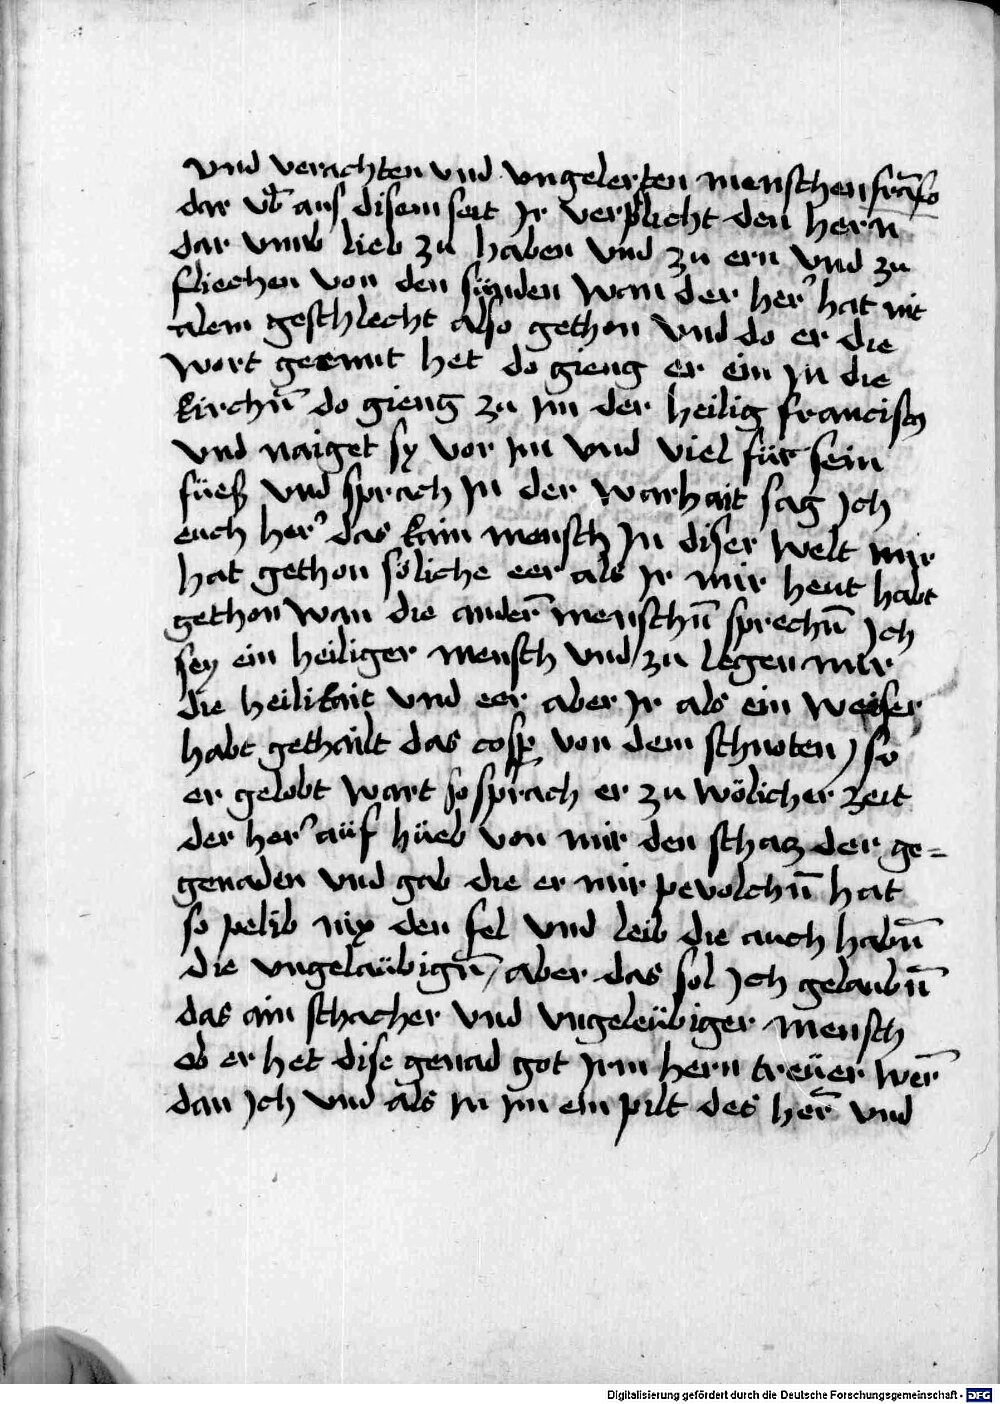 vnd verachten vnd vngelerten menschen
dar vb̄ aus disem seit Jr verplicht den hern̄
dar vmb lieb zu haben vnd zu ern vnd zu
fliechen von den sünden wan der her hat nit
alem geschlecht also gethon vnd do er die
wort geennt het do gieng er ein Jn die
kirchn̄ do gieng zu Jm der heilig francisch
vnd naiget sy vor Jm vnd viel für sein
füeß vnd sprach Jn der warhait sag Jch
euch her das kain mensch Jn diser welt mir
hat gethon söliche eer als Jr mir heut habt
gethon wan die ander̄ menschn̄ sprechn̄ Jch
sey ein heiliger mensch vnd zu legen mir
die heilikait vnd eer aber Jr als ein weiser
habt gethailt das cosp̄ von dem schnoten / so
er gelobt wart so sprach er zu wölicher zeit
der her auf hüeb von mir den schatz der ge=
genaden vnd gab die er mir pevolchn̄ hat
so pelib nix den sel vnd leib die auch habn̄
die vngelaübign̄ / aber das sol Jch gelaubn̄
das ain schacher vnd vngeleübiger mensch
ob er het dise genad got Jrm hern treüer wer̄
dan Jch vnd als Jn Jm ein pilt des her̄ vnd
Digitalisierung gefördert durch die Deutsche Forschungsgemeinschaft - DFG